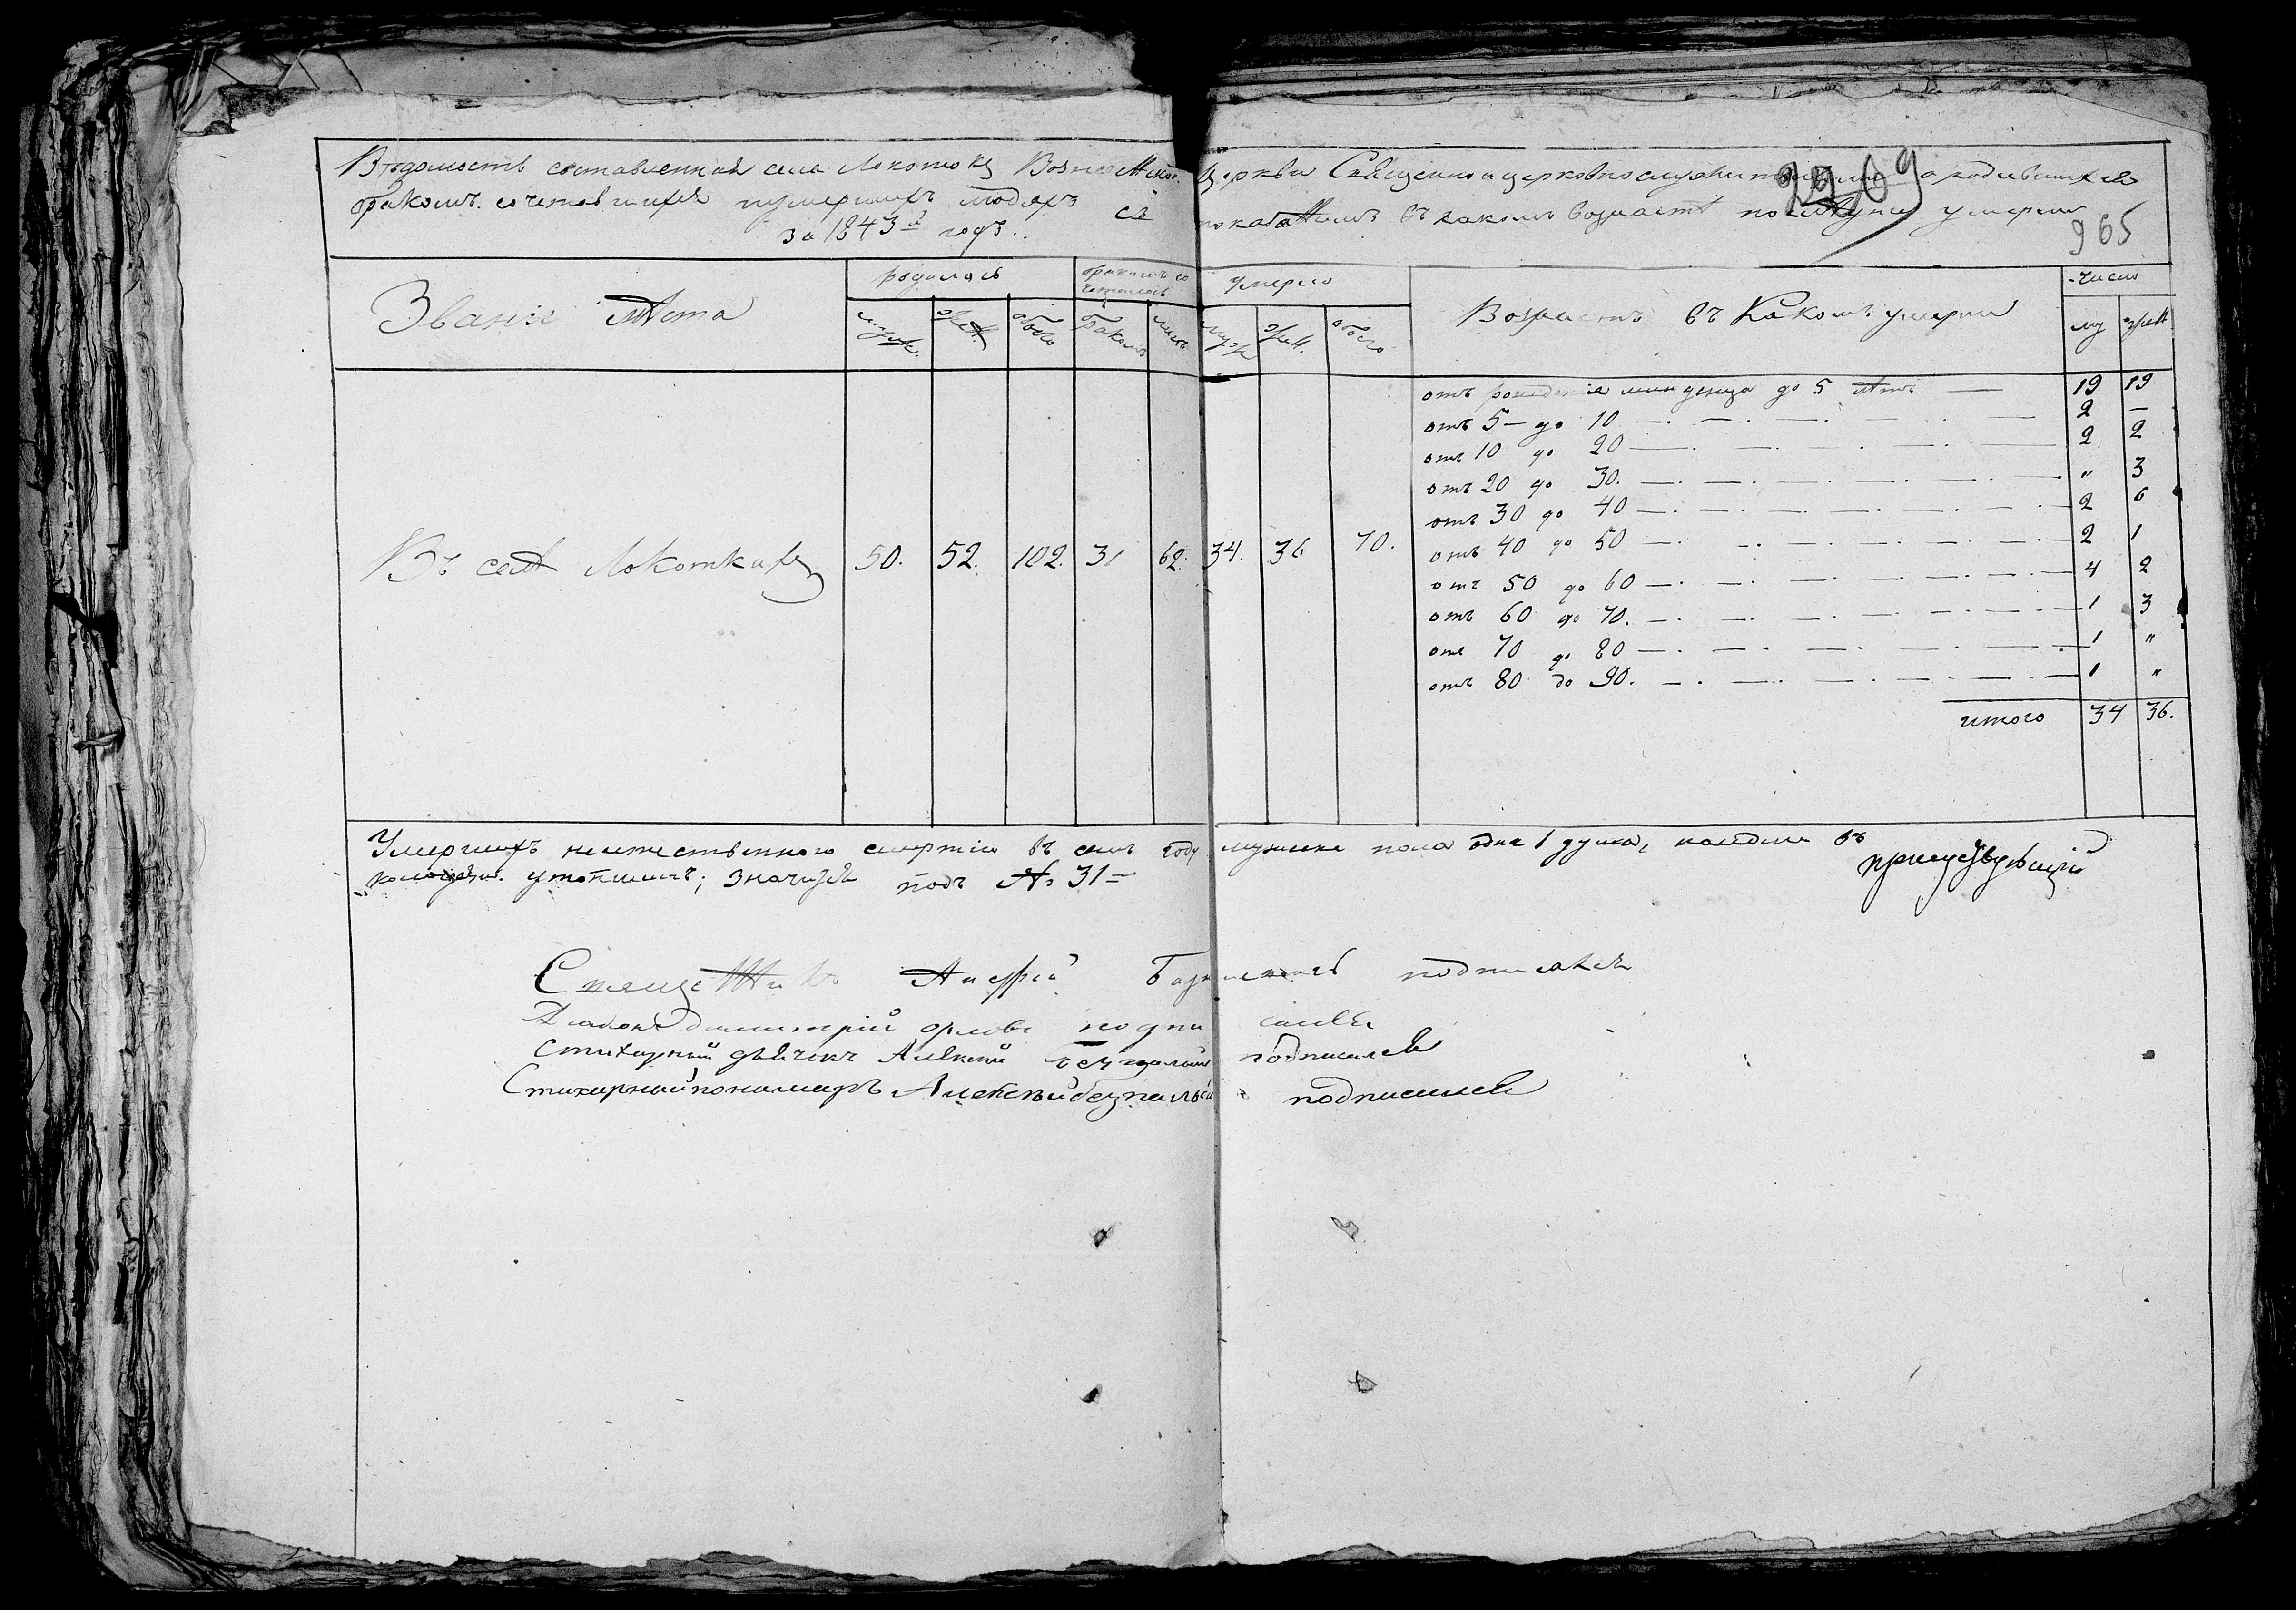 Вѣдомость составленная села Локотокъ Вознесенской церкви Священно и церковнослужителями о родившихся
бракомъ сочетавшихся и умершихъ людяхъ съ показаніемъ въ какомъ возрастѣ по сту умерли
за 1843й годъ.
2209
965
Званіе мѣста
родилось
бракомъ сочеталось
умерло
Возрастъ въ Какомъ умерли
число
муж. жен. обоего браков лиц муж жен. обоего му жен
отъ рожденія младенца до 5 лѣтъ — 19 19
отъ 5 — до 10 — 2 —
отъ 10 до 20 — 2 2
отъ 20 до 30. — „ 3
отъ 30 до 40 — 2 6
отъ 40 до 50 — 2 1
Въ селѣ Локоткахъ 50. 52. 102. 31 62. 34. 36 70.
отъ 50 до 60 — 4 2
отъ 60 до 70. — 1 3
отъ 70 до 80 — 1 „
отъ 80 до 90. — 1 „
итого 34 36.
Умершихъ неестественною смертію въ семъ году мужеска пола одна 1 душа, найдена въ
колодезѣ утопшимъ; значится подъ № 31 —
присудствующій
Священникъ Андрей подписался
Діаконъ Димитрій Орловъ подписался
Стихарный дьячекъ Алексѣй подписался
Стихарный пономарь Алексѣй Безпалый подписался